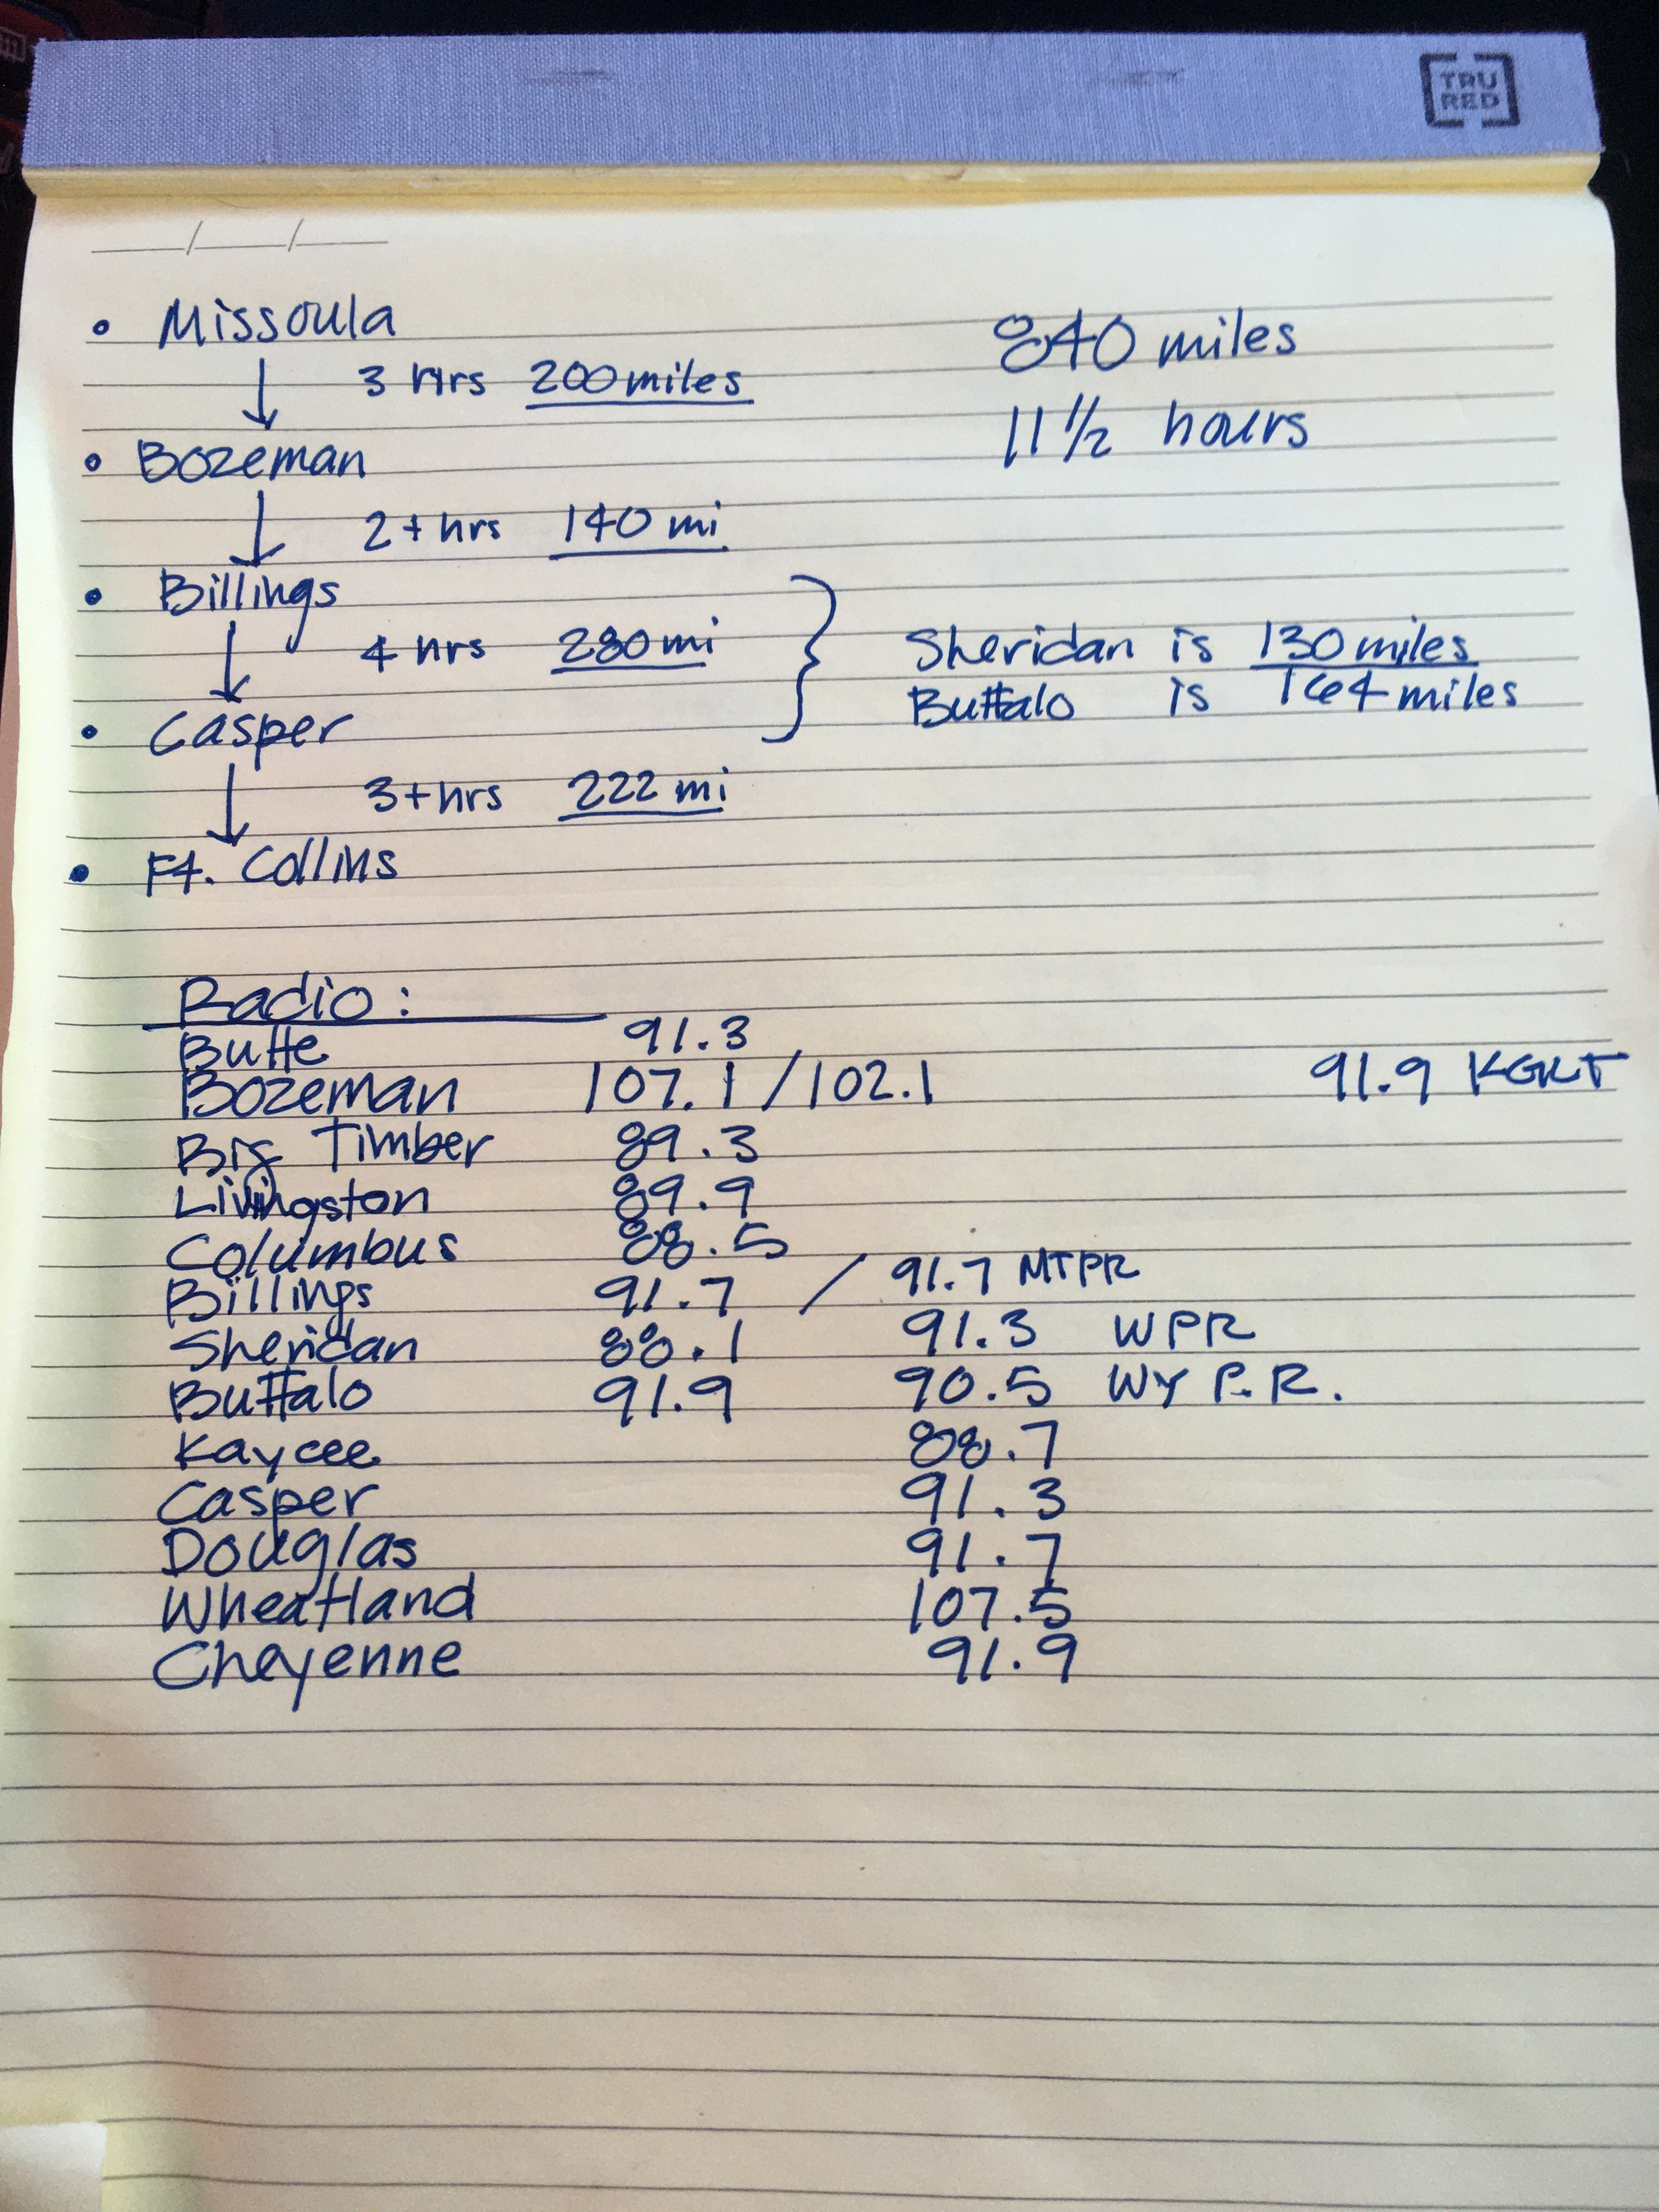 TRU
RED
• Missoula 840 miles
3 hrs 200 miles
11 1/2 hours
• Bozeman
2+hrs 140 mi
• Billings
4 hrs 280 mi } Sheridan is 130 miles
Buffalo is 164 miles
• Casper
3+hrs 222 mi
• Ft. Collins
Radio:
Butte 91.3
Bozeman 107.1 / 102.1 91.9 KGKT
Big Timber 89.3
Livingston 89.9
Columbus 88.5
Billings 91.7 / 91.7 MTPR
Sheridan 88.1 91.3 WPR
Buffalo 91.9 90.5 WY P.R.
Kaycee 88.7
Casper 91.3
Douglas 91.7
Wheatland 107.5
Cheyenne 91.9